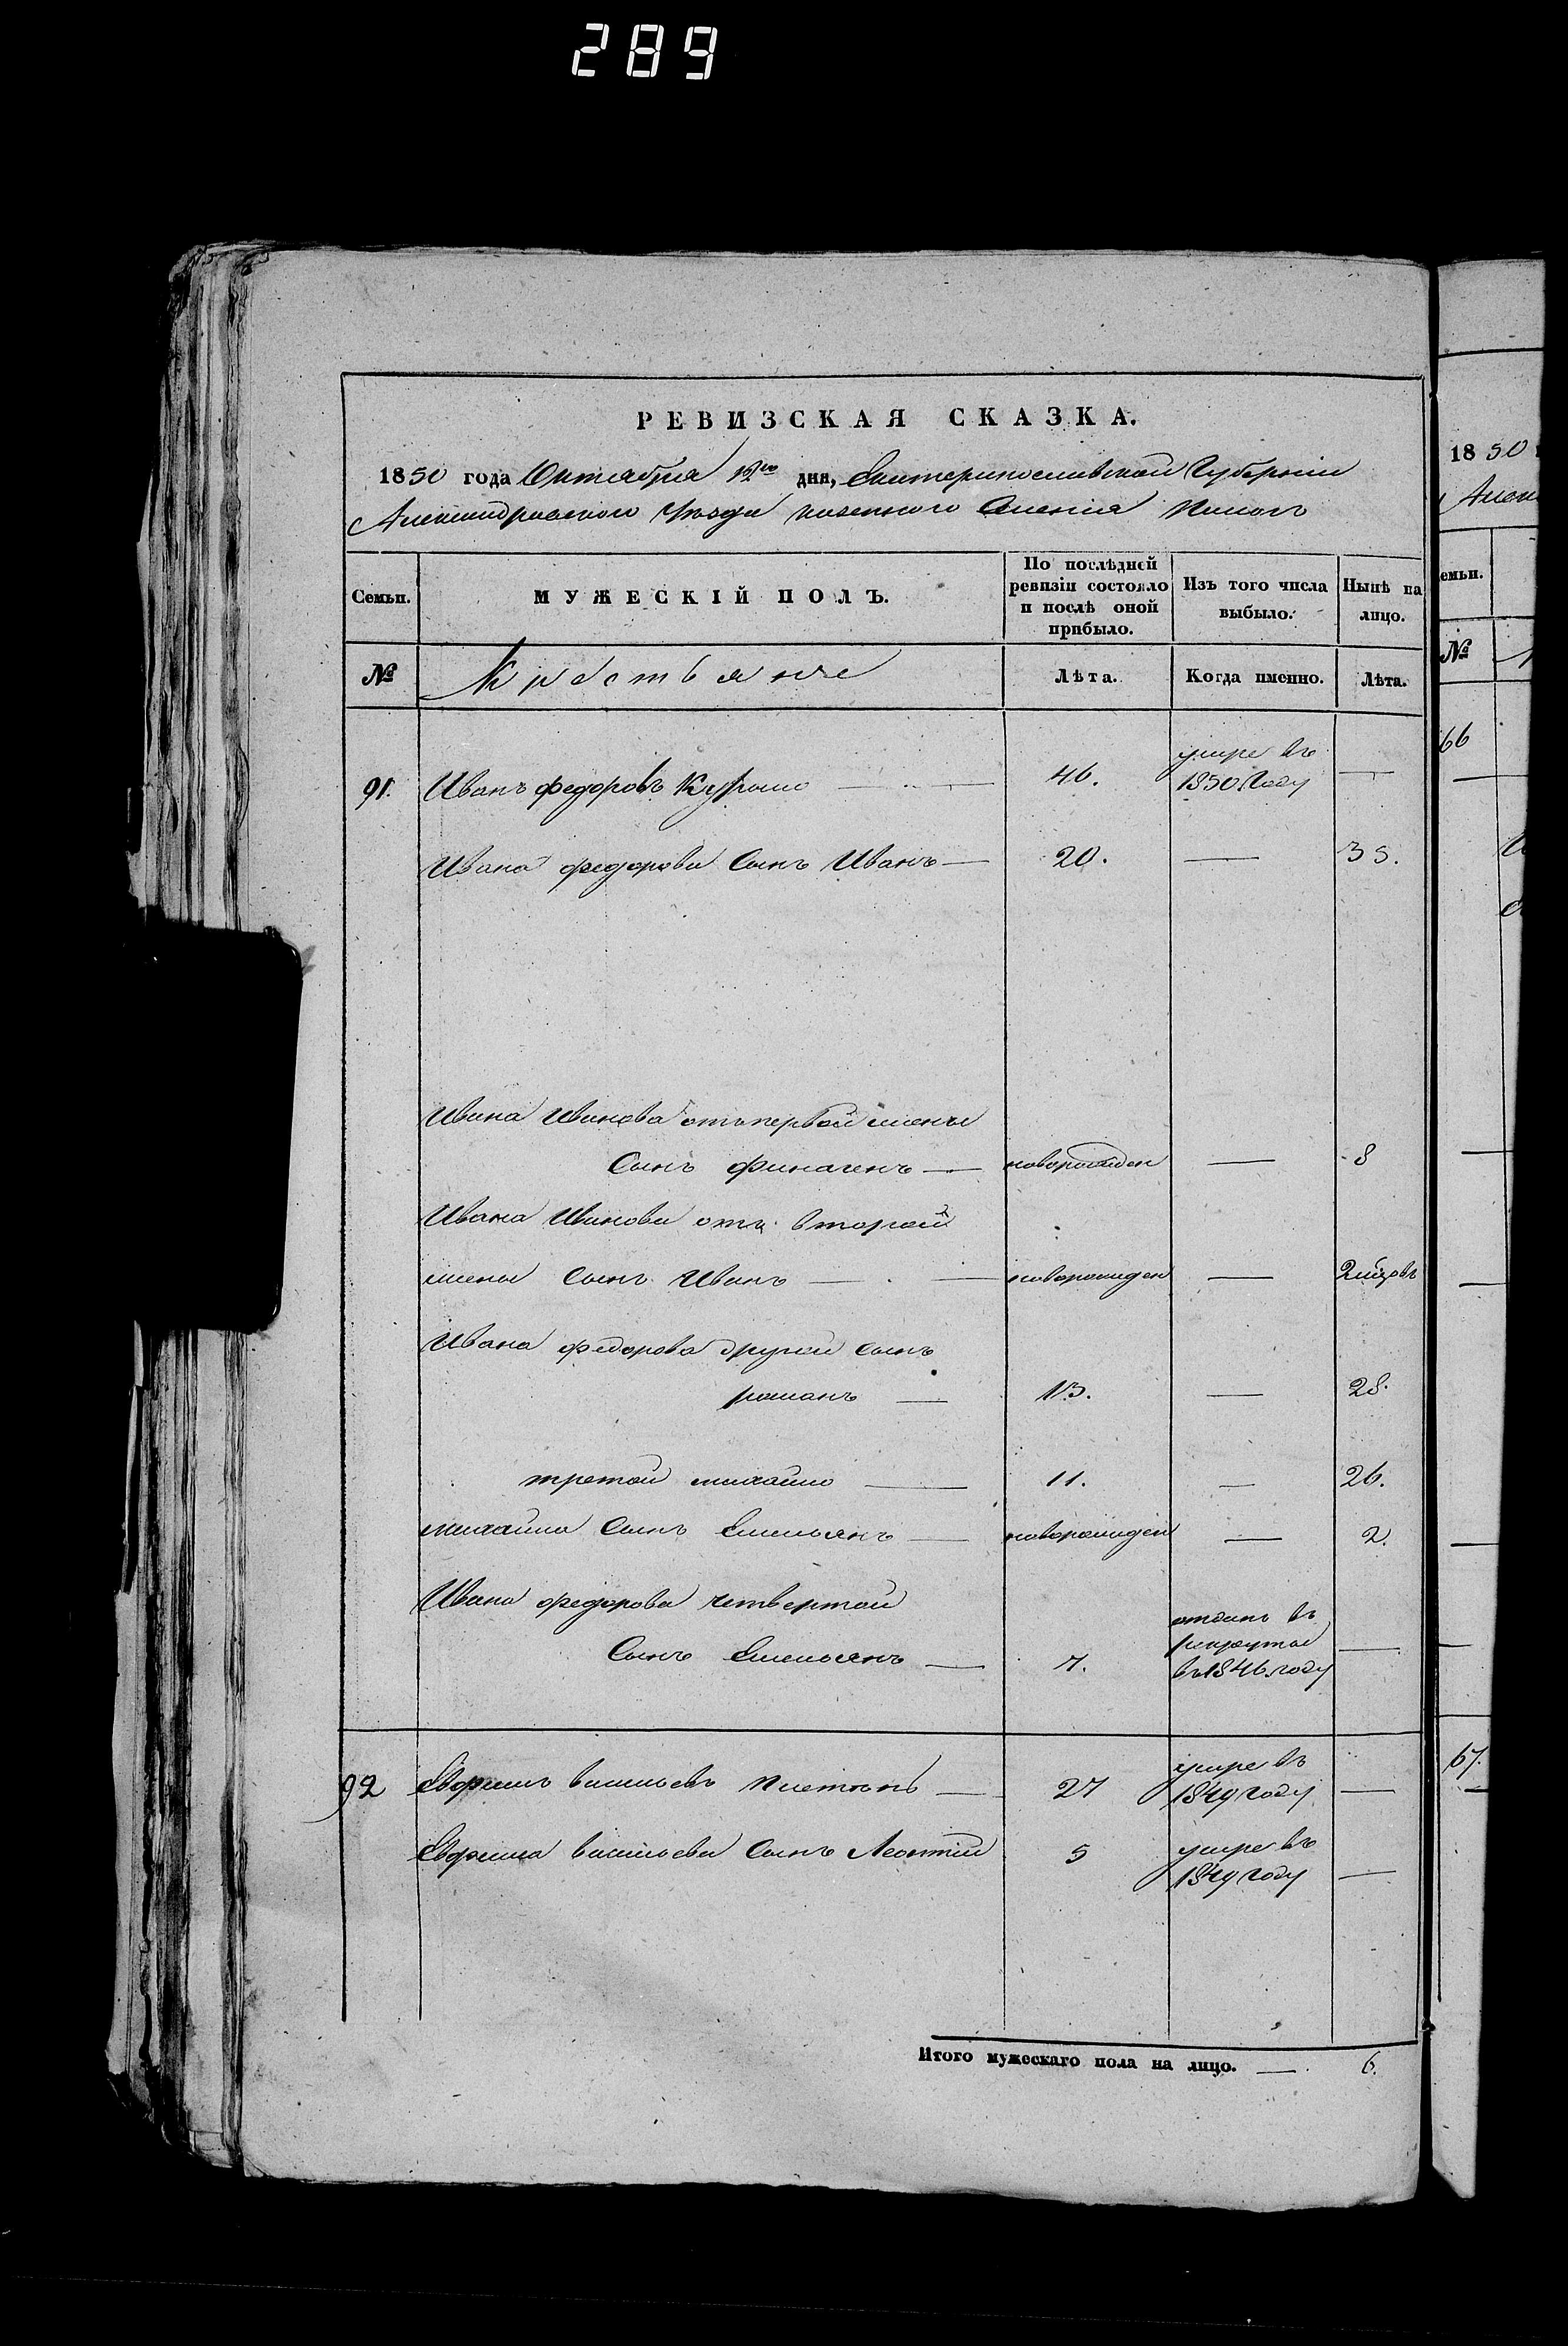 289
РЕВИЗСКАЯ СКАЗКА.
1850 года Октября 12го дня, Екатеринославской Губернiи
Александровского Уезда казенного Селенiя
Семьи.
МУЖЕСКIЙ ПОЛЪ.
По послѣдней ревизiи состояло и послѣ оной прибыло.
Изъ того числа выбыло.
Нынѣ на лицо.
№
Крестьяне
Лѣта.
Когда именно.
Лѣта.
91. Иванъ федоровъ 46. умре въ 1850 Году —
Ивана федорова Сынъ Иванъ — 20. — 35.
Ивана Иванова отъ первой жены
Сынъ финагенъ — новорожден — 8
Ивана Иванова отъ второй
жены Сынъ Иванъ — новорожден — 2 мцовъ
Ивана федорова другой сынъ
романъ — 13. — 28.
третой михайло — 11. — 26.
михайла Сынъ Емельянъ — новорожден — 2.
Ивана федорова четвертой
Сынъ Емельянъ — 7. отданъ въ рекруты въ 1846 году —
92 Васильевъ — 27 умре въ 1849 году —
Васильева Сынъ Леонтiй 5 умре въ 1849 году —
Итого мужескаго пола на лицо. — 6.
1850
емьи.
№
66
67.